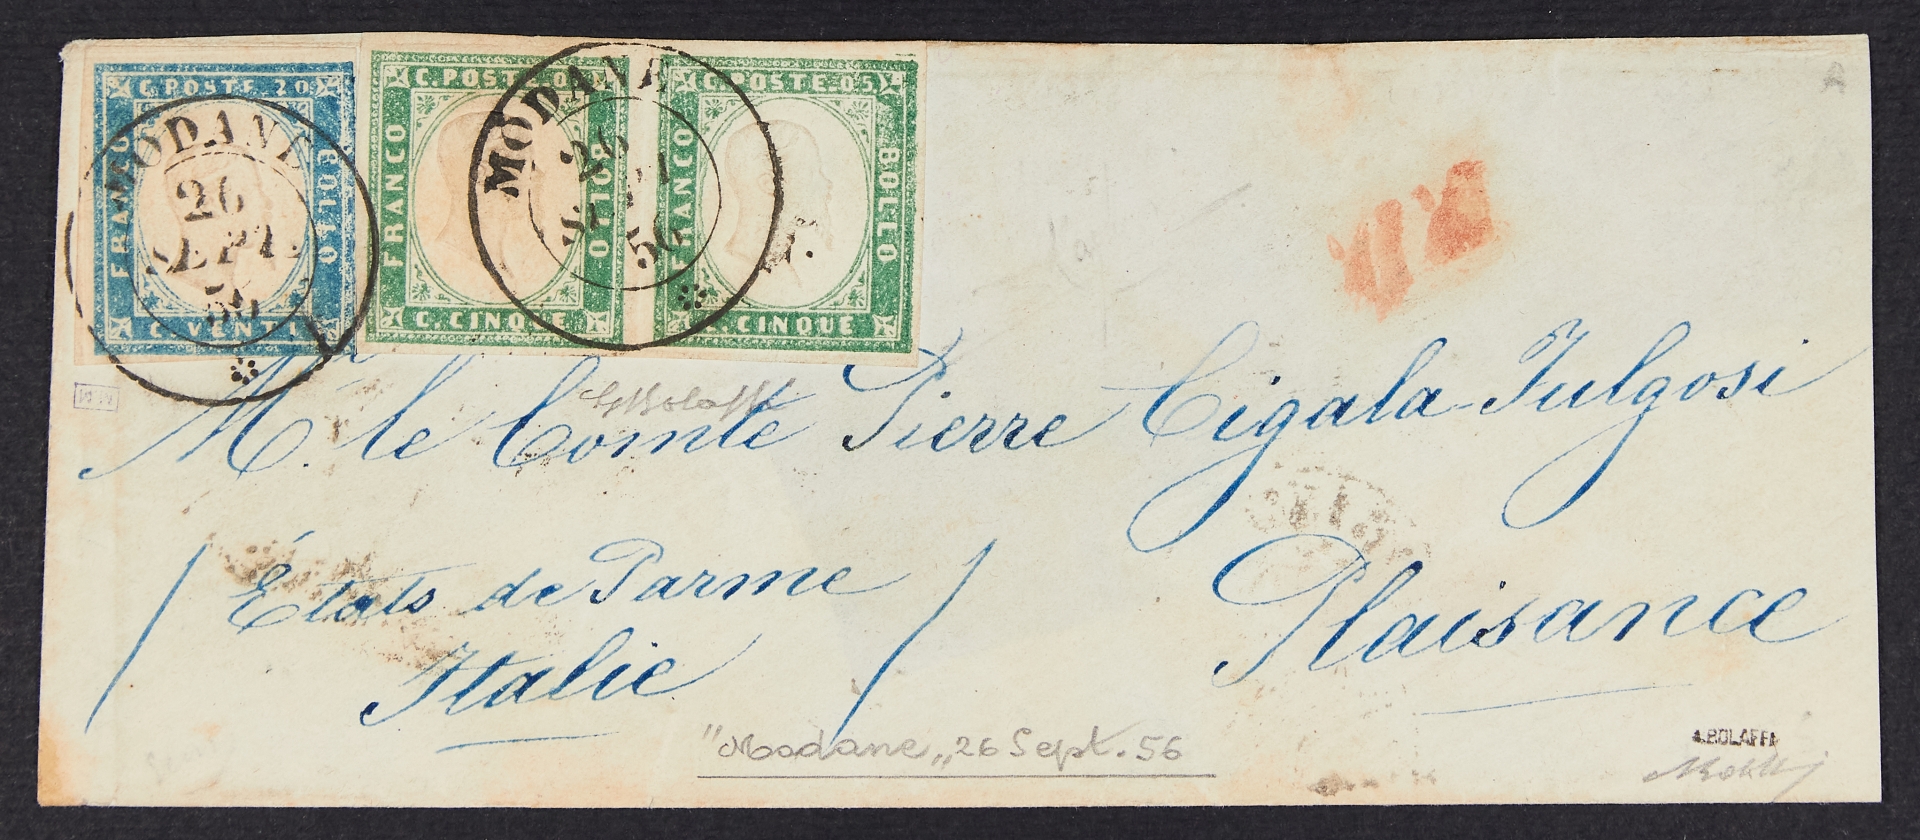 C. POSTE 20
FRANCO
BOLLO
C. VENTI
MODANE
26
SEPT.
56
C. POSTE 05
FRANCO
BOLLO
C. CINQUE
MODANE
26
SEPT
56
C. POSTE 05
FRANCO
BOLLO
C. CINQUE
A
GBolaffi
M. le Comte Pierre Cigala-Fulgosi
Plaisance
États de Parme
Italie
"Modane" 26 Sept. 56
A. BOLAFFI